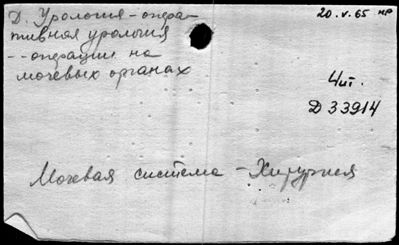 Д. Урология - опера-
тивная урология
-- операции на
мочевых органах
20.V.65 нр
Чит.
Д 33914
Мочевая система - Хирургия